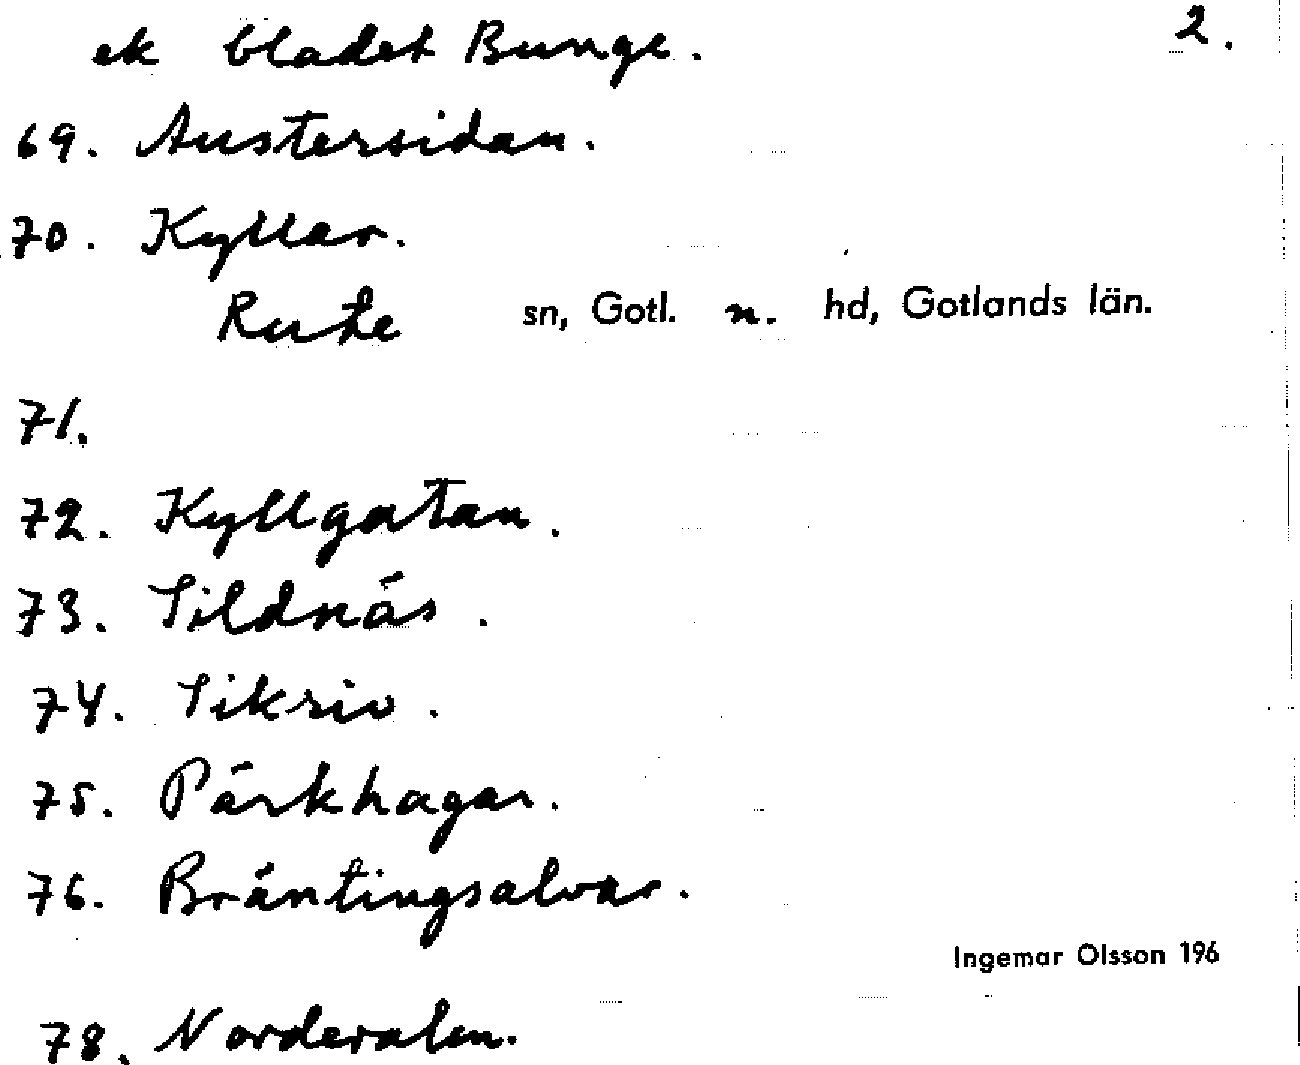 ek bladet Bunge. 2.
69. Austersidan.
70. Kyllar.
Rute sn, Gotl. n. hd, Gotlands län.
71.
72. Kyllgatan.
73. Sildnäs.
74. Sikriv.
75. Pärkhagar.
76. Bräntingsalvar.
Ingemar Olsson 196
78. Norderalm.